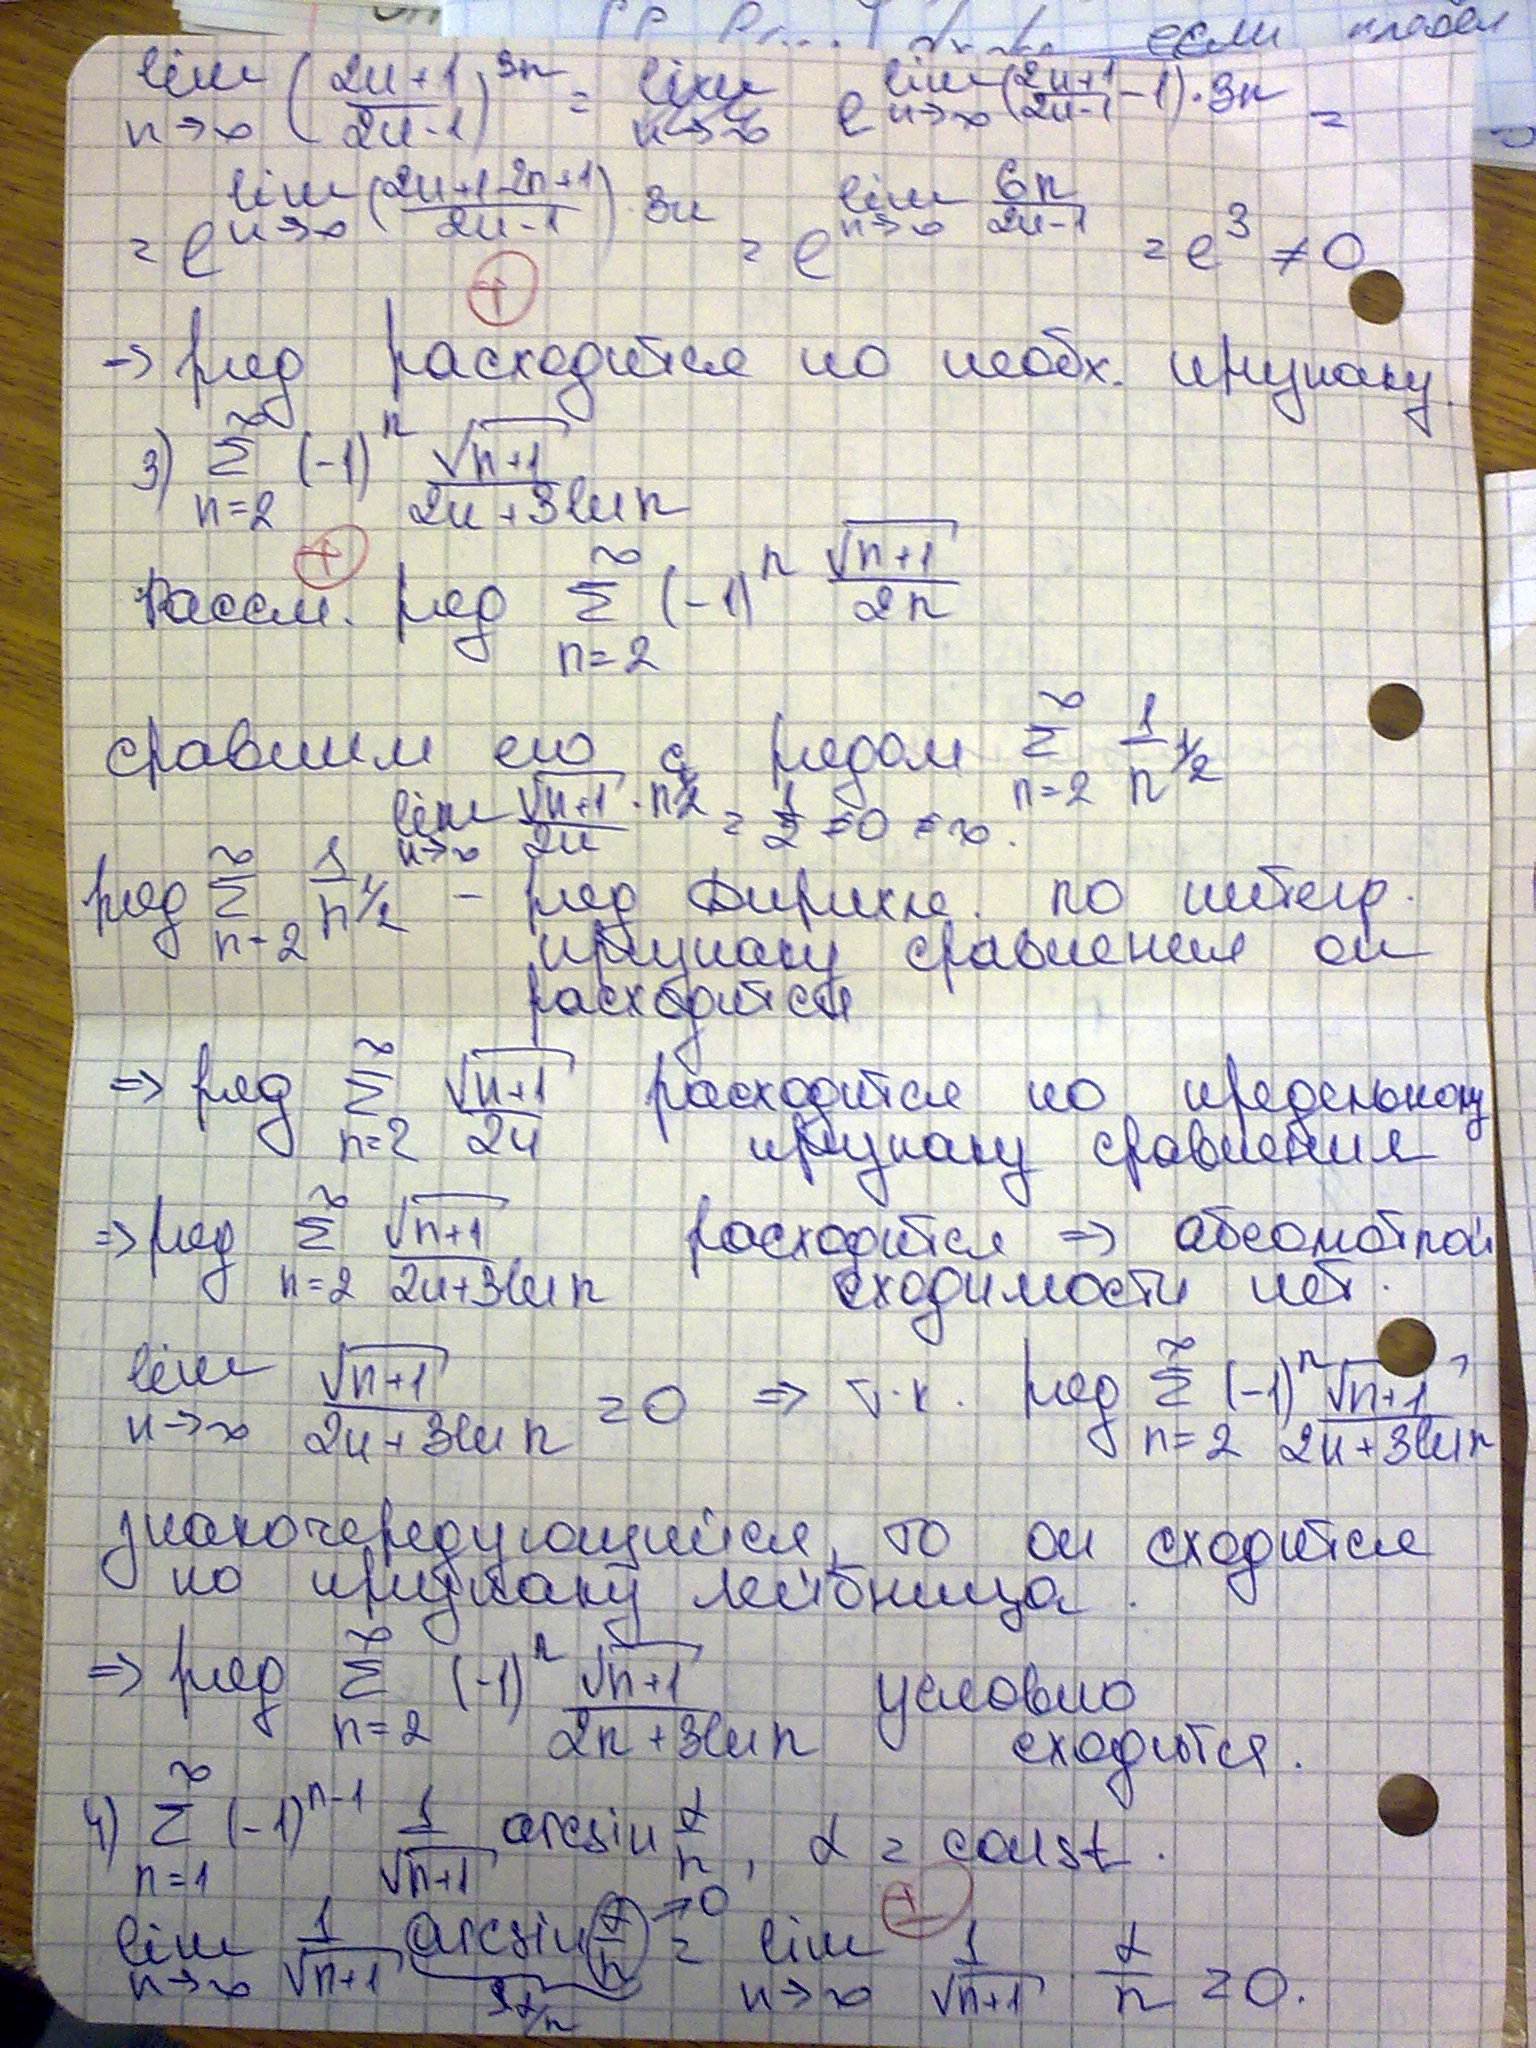 если
lim n→∞ (2n+1/2n-1)^3n = lim n→∞ e^lim n→∞ (2n+1/2n-1 - 1)·3n =
= e^lim n→∞ (2n+1-2n+1/2n-1)·3n = e^lim n→∞ 6n/2n-1 = e^3 ≠ 0
+
→ ряд расходится по необх. признаку.
3) ∞ Σ n=2 (-1)^n √n+1 / 2n+3ln n
+
Рассм. ряд ∞ Σ n=2 (-1)^n √n+1 / 2n
сравним его с рядом ∞ Σ n=2 1/n^1/2
lim n→∞ √n+1/2n · n^1/2 = 1/2 ≠0 ≠∞.
ряд ∞ Σ n=2 1/n^1/2 – ряд Дирихле. по интегр.
признаку сравнения он
расходится
⇒ ряд ∞ Σ n=2 √n+1 / 2n расходится по предельному
признаку сравнения
⇒ ряд ∞ Σ n=2 √n+1 / 2n+3ln n расходится ⇒ абсолютной
сходимости нет.
lim n→∞ √n+1 / 2n+3ln n = 0 ⇒ т.к. ряд ∞ Σ n=2 (-1)^n √n+1 / 2n+3ln n
знакочередующийся, то он сходится
по признаку лейбница.
⇒ ряд ∞ Σ n=2 (-1)^n √n+1 / 2n+3ln n условно
сходится.
4) ∞ Σ n=1 (-1)^n-1 1/√n+1 arcsin α/n, α = const.
+
lim n→∞ 1/√n+1 arcsin α/n →0 = lim n→∞ 1/√n+1 α/n = 0.